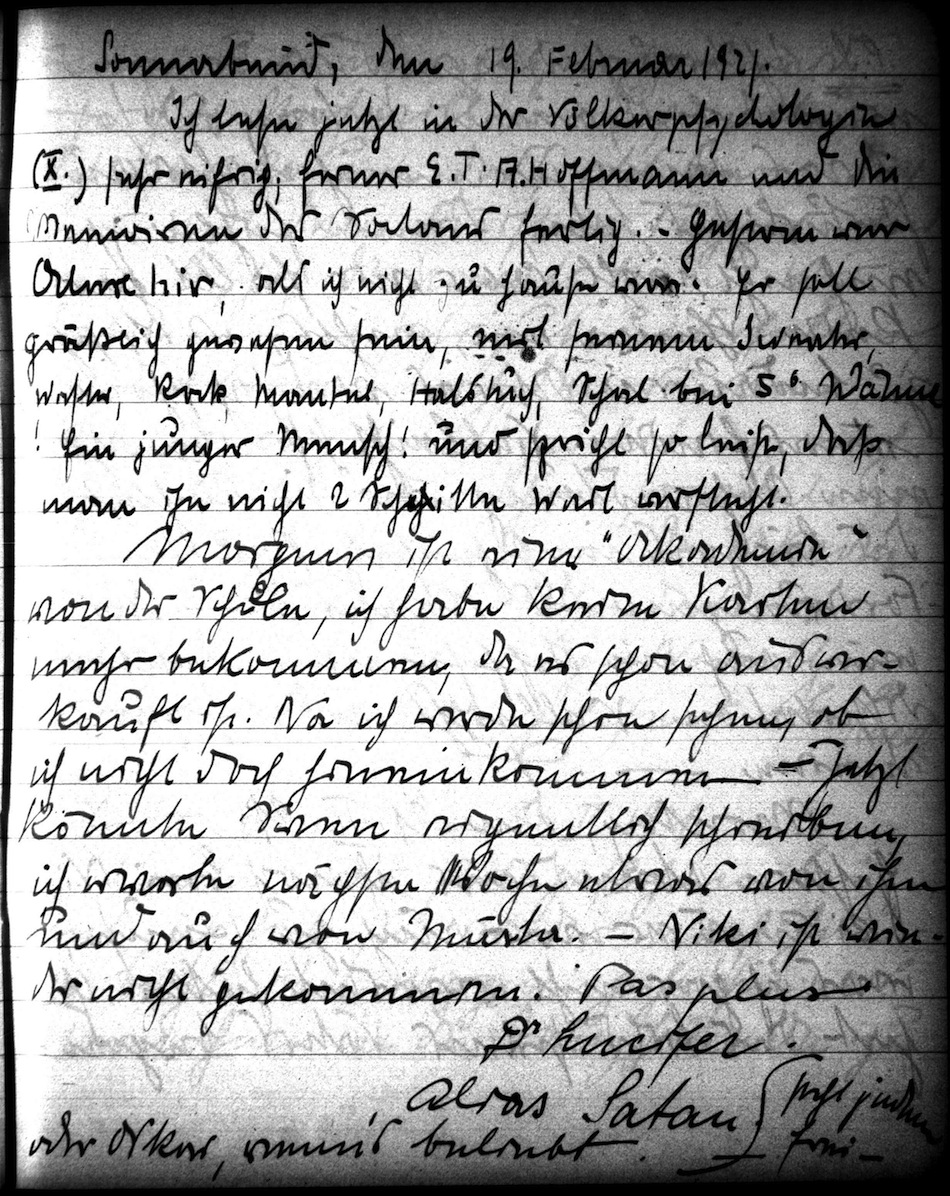 Sonnabend, den 19. Februar 1921.
Ich lese jetzt in der Völkerpsychologie
(X.) sehr eifrig, ferner E.T.A. Hoffmann und die
Memoiren des Satans fertig. - Gestern war
hier, als ich nicht zu Hause war. Er soll
gräßlich gewesen sein, mit seinem Sweater,
Weste, Rock, Mantel, Halstuch, Schal bei 5° Wärme
! Ein junger Mensch! und spricht so leise, daß
man ihn nicht 2 Schritte weit versteht.
Morgen ist eine "Akademie"
von der Schule, ich habe keine Karten
mehr bekommen, da es schon ausver-
kauft ist. Na ich werde schon sehen, ob
ich nicht doch hineinkomme. - Jetzt
könnte Sven eigentlich schreiben,
ich erwarte nächste Woche etwas von ihm
und auch von - Niki ist wie-
der nicht gekommen. Pas plus
Dr Lucifer.
alias Satan } steht jedem
oder Oskar, wenn's beliebt. frei -